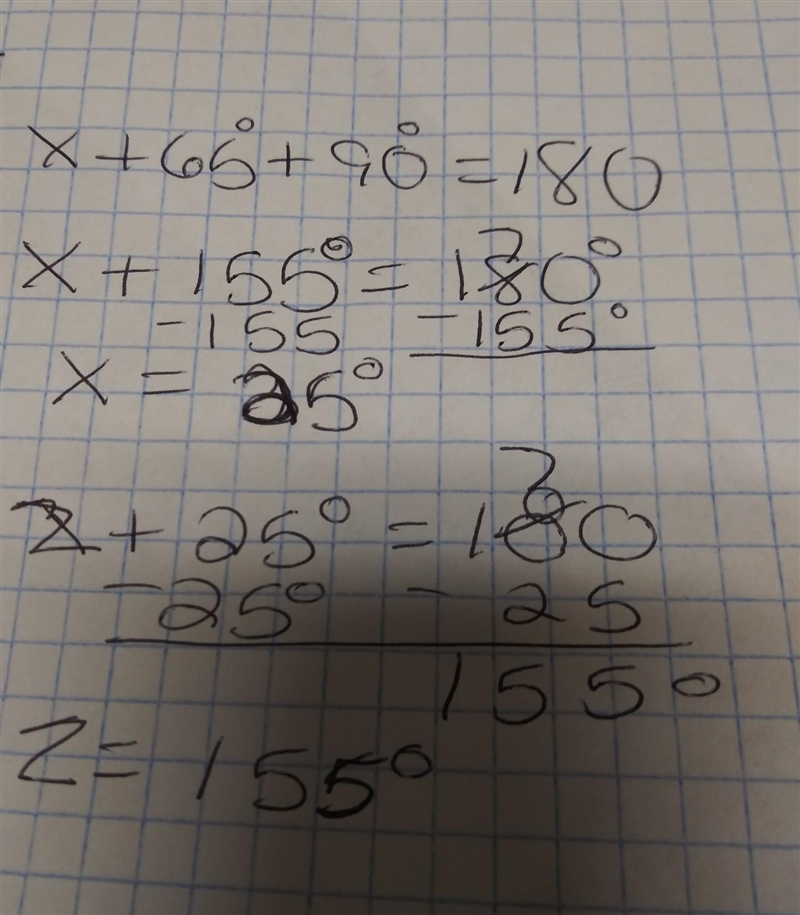 x + 65° + 90° = 180
x + 155° = 180°
7
- 155 - 155°
x = 25°
7
z + 25° = 180
- 25° - 25
155°
z = 155°